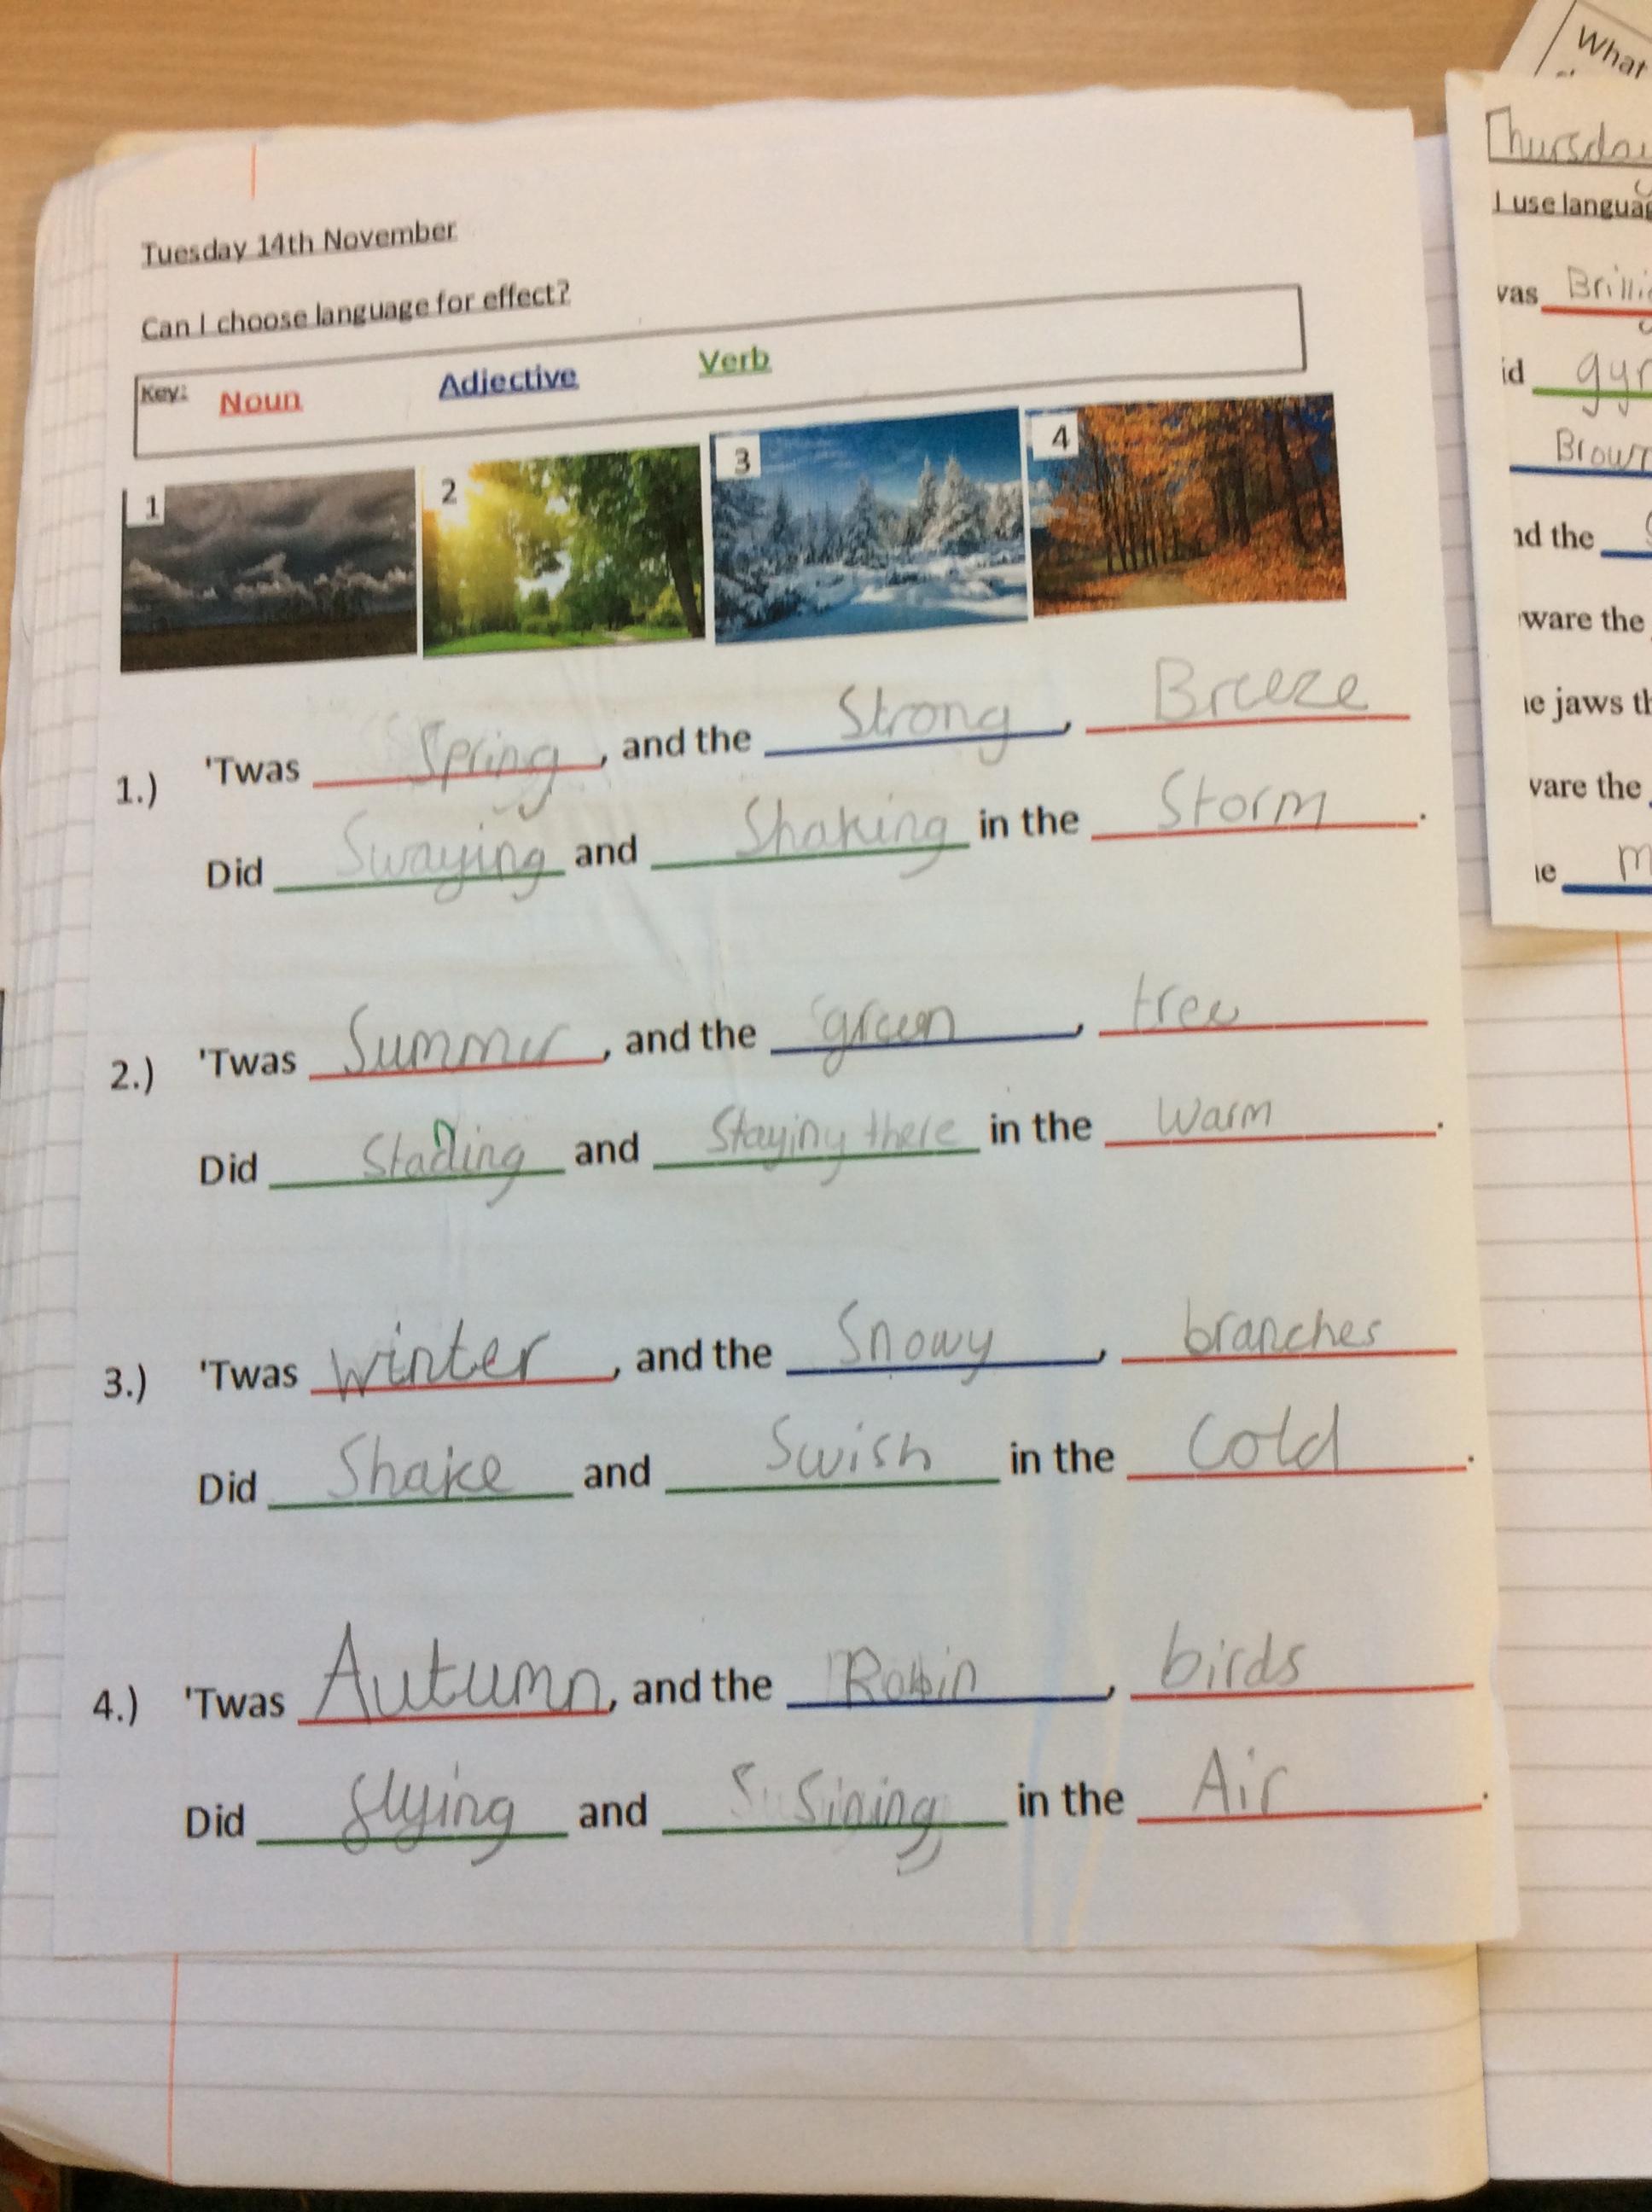 Tuesday 14th November
Can I choose language for effect?
Key: Noun Adjective Verb
1 2 3 4
1.) 'Twas Spring, and the Strong, Breeze
Did Swaying and Shaking in the Storm.
2.) 'Twas Summer, and the green, tree
Did Stading and Staying there in the warm.
n
3.) 'Twas winter, and the Snowy, branches
Did Shake and Swish in the Cold.
4.) 'Twas Autumn, and the Robin, birds
Did flying and Sining in the Air.
What
Thursday
I use languag
was Brilli
id gyr
Brow
nd the
ware the
e jaws th
vare the
e m